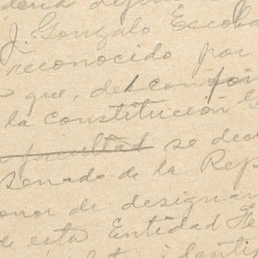 J. Gonzalo Escoba
reconocido por
que, del con
la constitución G
facultad se decl
Senado de la Rep
onor de designar
de esta Entidad Fe